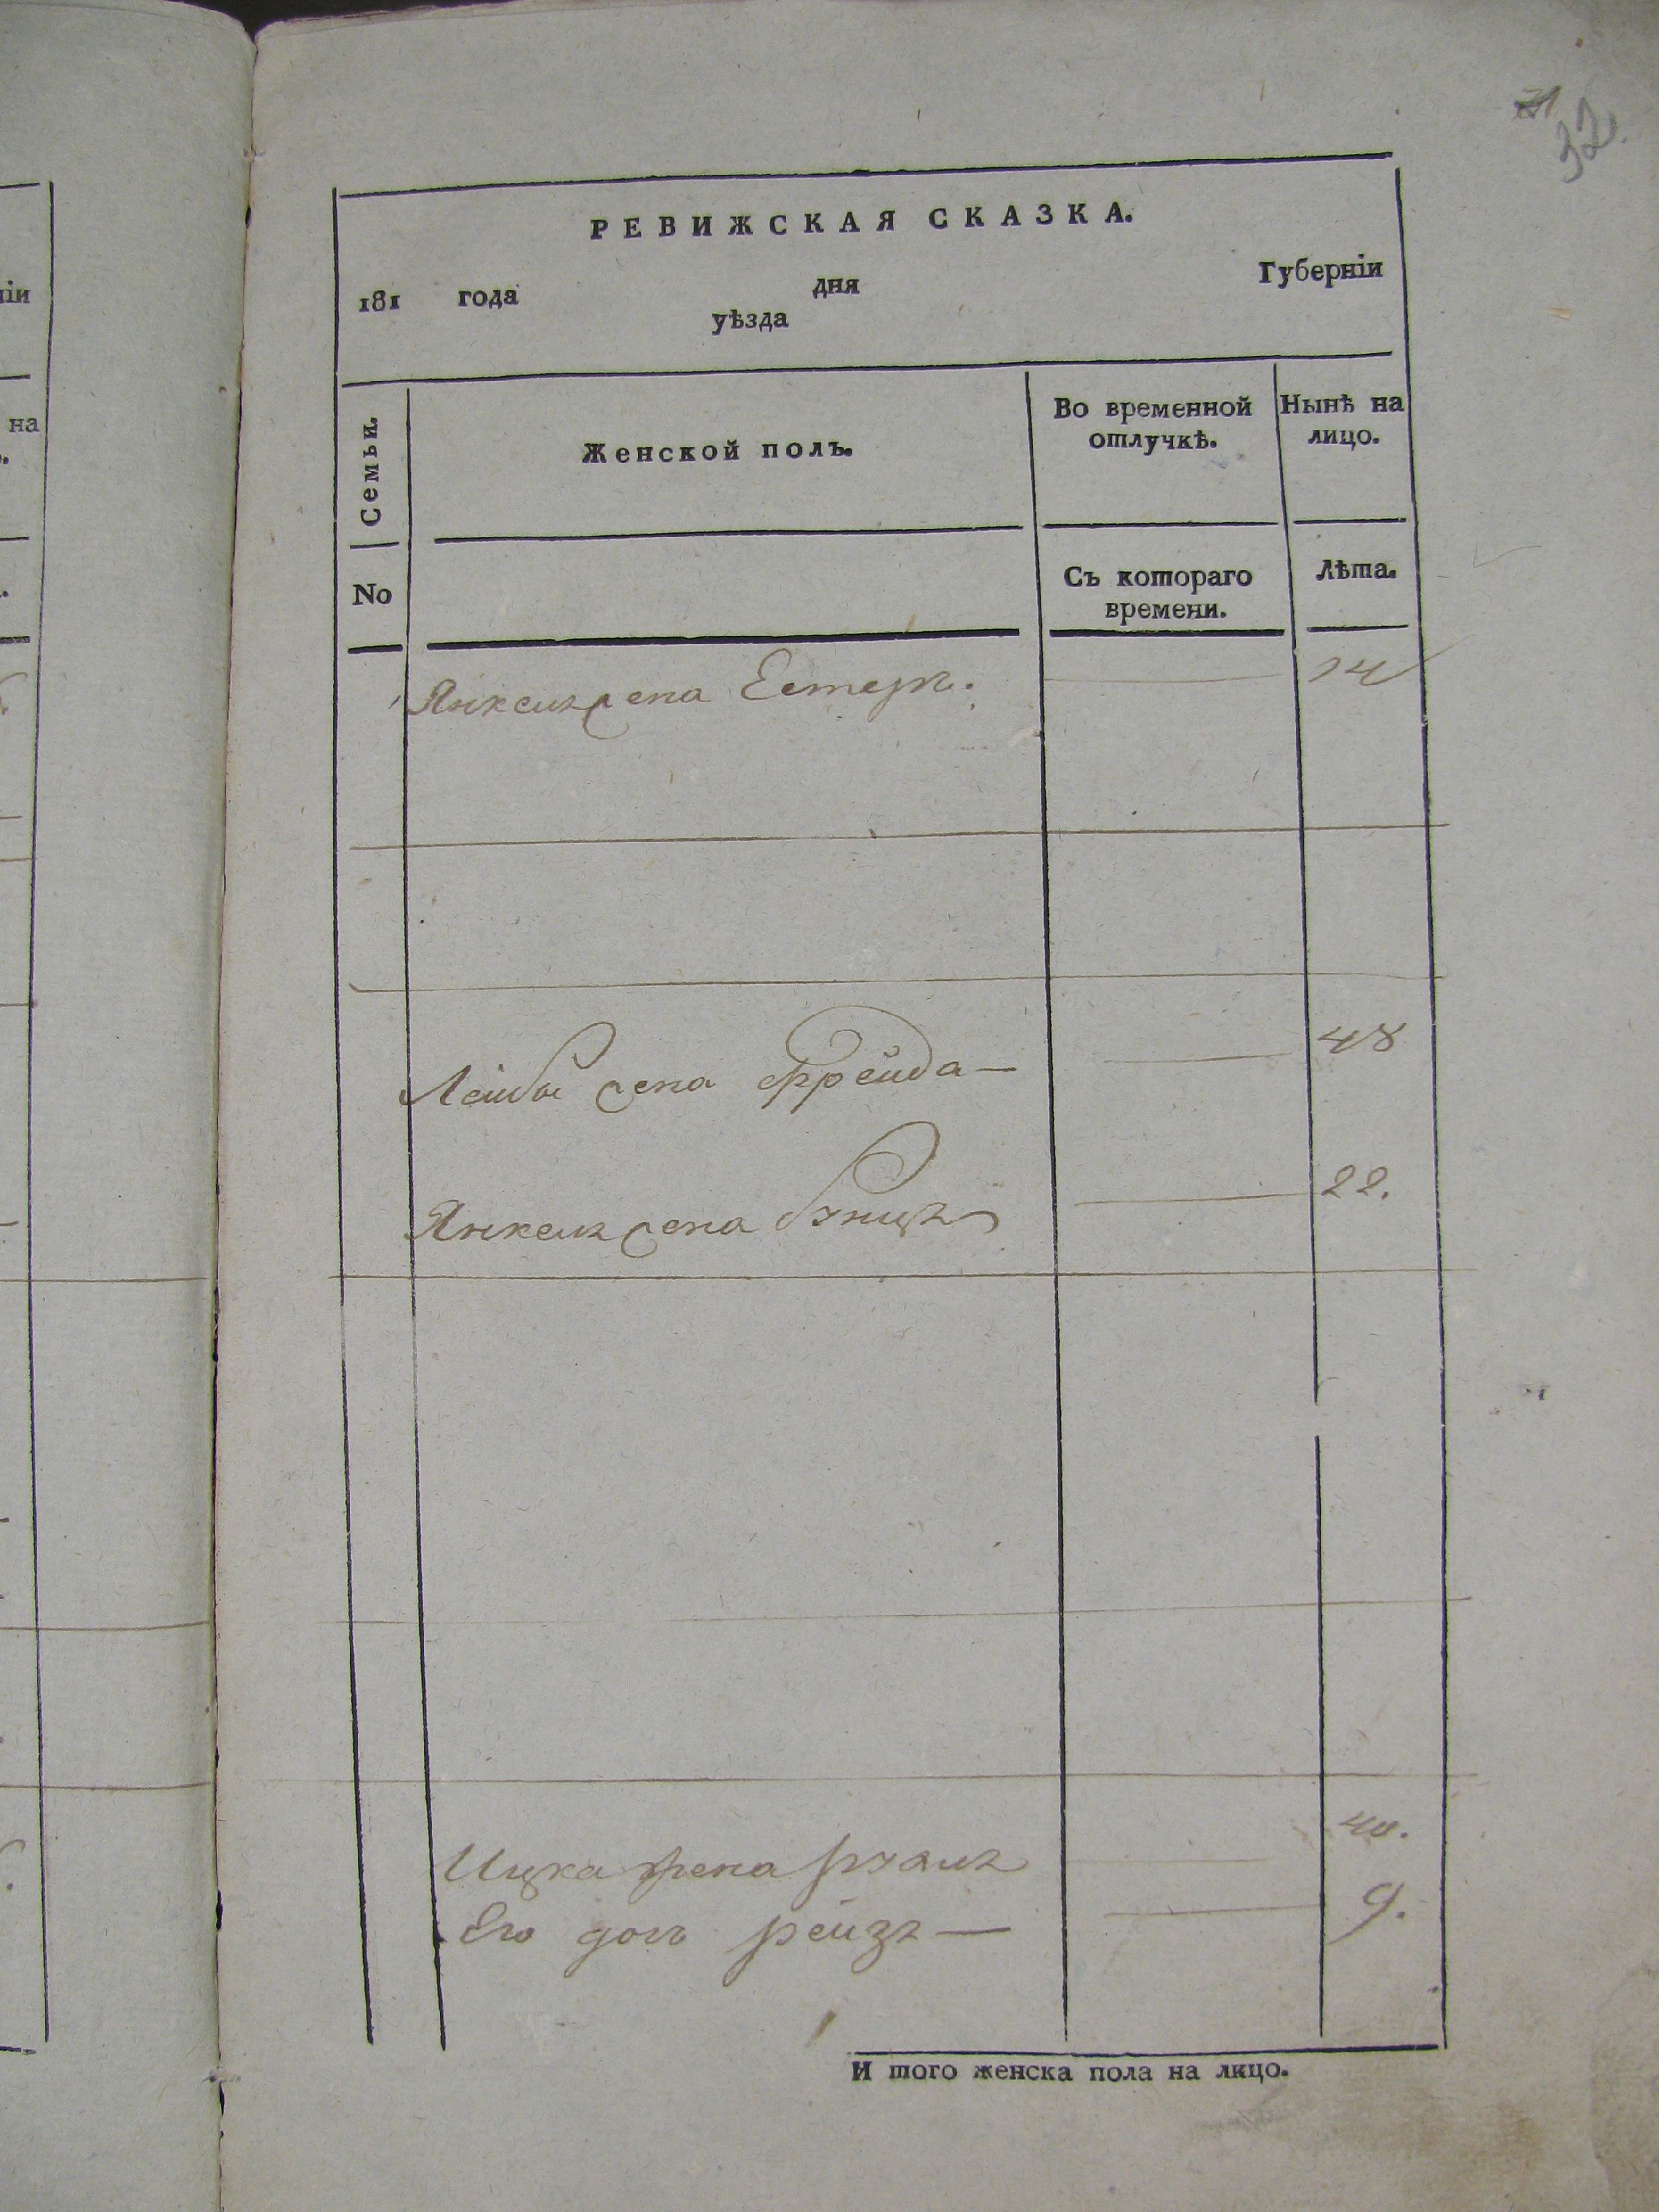 32.
РЕВИЖСКАЯ СКАЗКА.
181 года дня Губерніи
уѣзда
Семьи. Женской полъ. Во временной отлучкѣ. Нынѣ на лицо.
No Съ котораго времени. Лѣта.
жена Естеръ. 14
Лейбы жена Фрейда — 48
жена 22.
Ицка жена 40.
Его дочь рейза — 9.
И того женска пола на лицо.
ніи
на